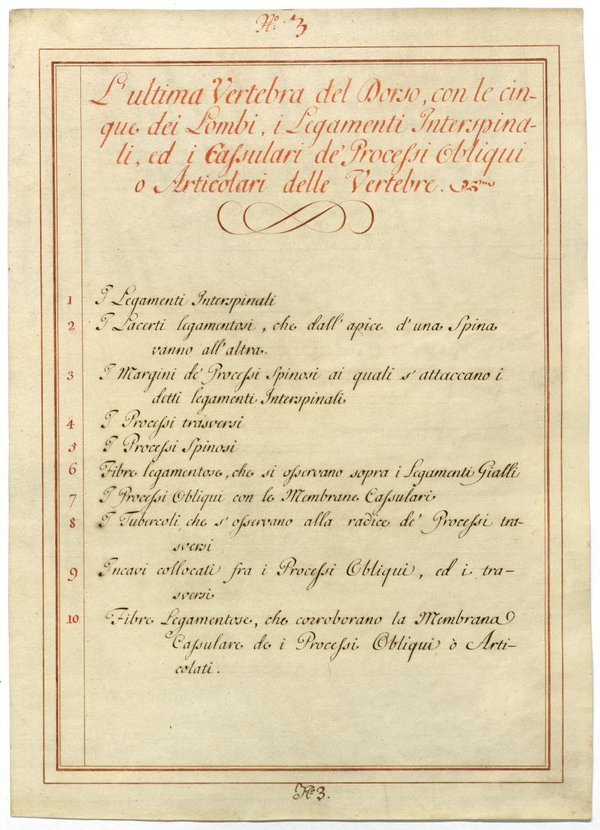 No. 3
L'ultima Vertebra del Dorso, con le cin-
que dei Lombi, i Legamenti Interspina-
li, ed i Cassulari de' Processi Obliqui
o Articolari delle Vertebre.
1 I Legamenti Interspinali
2 I Lacerti legamentosi, che dall' apice d' una Spina
vanno all' altra.
3 I Margini de' Processi Spinosi ai quali s' attaccano i
detti legamenti Interspinali
4 I Processi trasversi
5 I Processi Spinosi
6 Fibre legamentose, che si osservano sopra i Legamenti Gialli
7 I Processi Obliqui con le Membrane Cassulari
8 I Tubercoli, che s' osservano alla radice de' Processi tra-
sversi
9 Incavi collocati fra i Processi Obliqui, ed i tra-
sversi
10 Fibre Legamentose, che corroborano la Membrana
Cassulare de i Processi Obliqui ò Arti-
colati.
No 3.